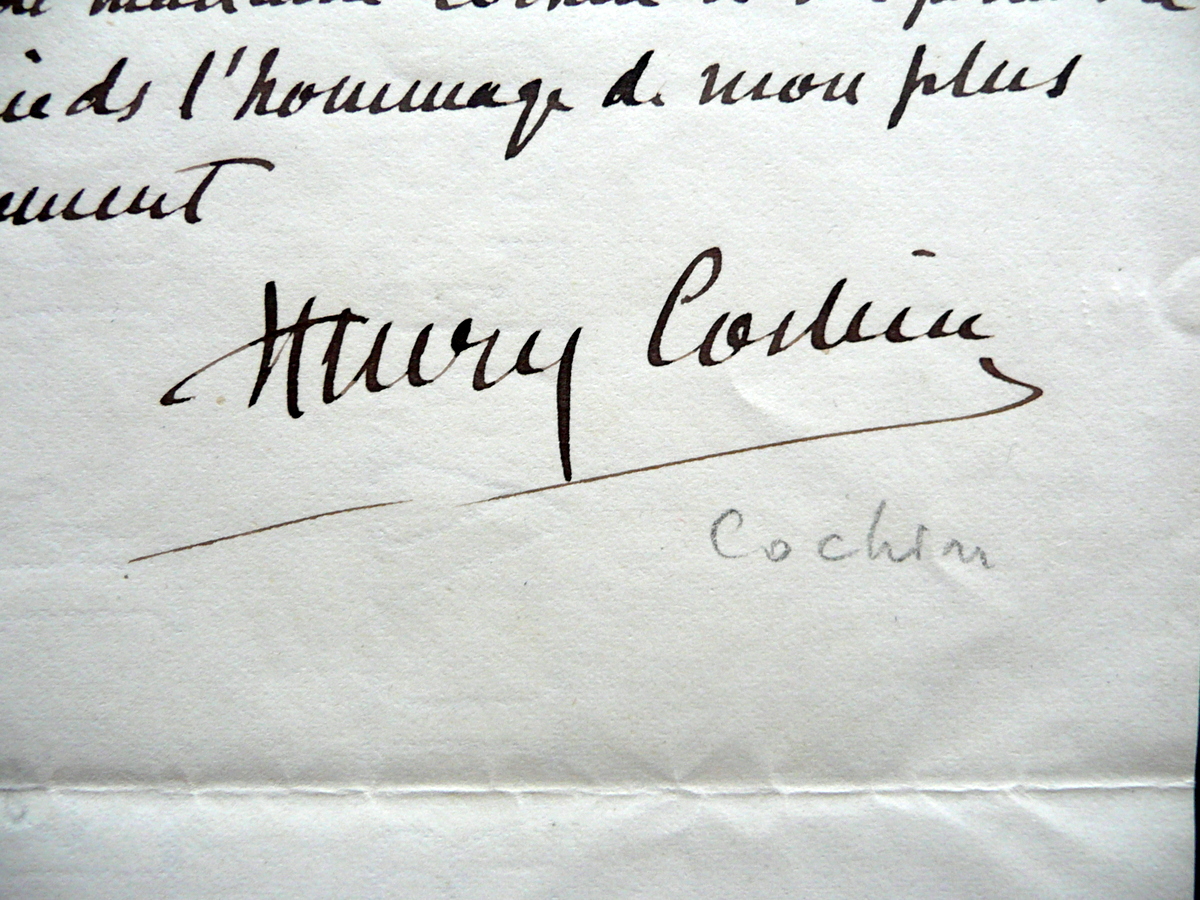 madame
ieds l'hommage de mon plus
ument
Henry Cochin
Cochin